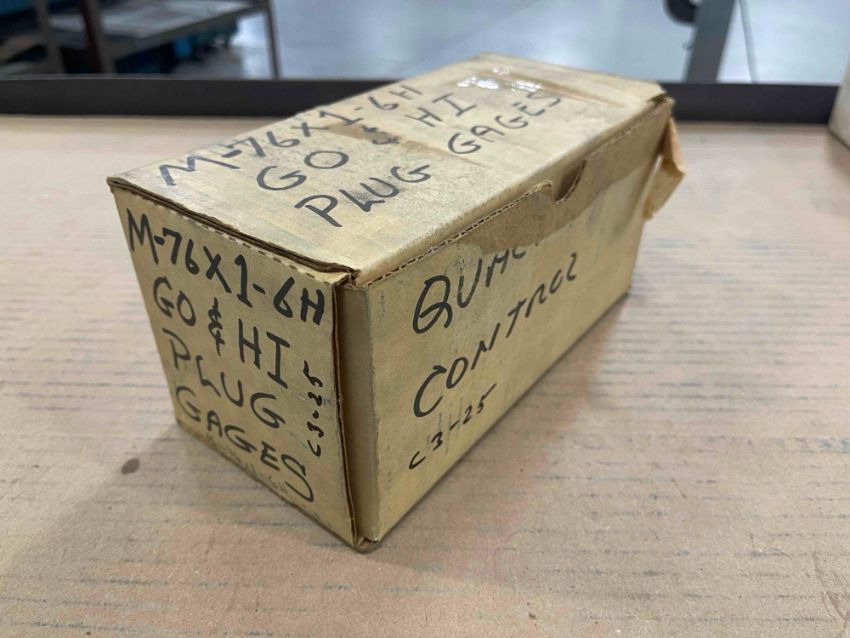 M-76X1-6H
GO & HI
PLUG GAGES
M-76X1-6H
GO & HI
PLUG
GAGES
C3-25
M-76X1-6H
CONTROL
C3-25